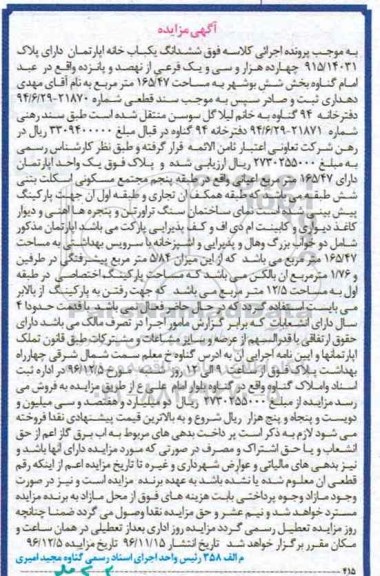 آگهی مزایده
به موجب پرونده اجرائی کلاسه فوق ششدانگ یکباب خانه آپارتمان دارای پلاک
۹۱۵/۱۴۰۳۱ چهارده هزار و سی و یک فرعی از نهصد و پانزده واقع در عبد
امام گناوه بخش شش بوشهر به مساحت ۱۶۵/۴۷ متر مربع به نام آقای مهدی
دهداری ثبت و صادر سپس به موجب سند قطعی شماره ۲۱۸۷۰-۹۴/۶/۲۹
دفترخانه ۹۴ گناوه به خانم لیلا گل سوسن منتقل شده است طبق سند رهنی
شماره ۲۱۸۷۱-۹۴/۶/۲۹ دفترخانه ۹۴ گناوه در قبال مبلغ ۳۳۰۹۴۰۰۰۰۰ ریال در
رهن شرکت تعاونی اعتبار ثامن الائمه قرار گرفته و طبق نظر کارشناس رسمی
به مبلغ ۲۷۳۰۲۵۵۰۰۰ ریال ارزیابی شده و پلاک فوق یک واحد آپارتمان
دارای ۱۶۵/۴۷ متر مربع اعیانی واقع در طبقه پنجم مجتمع مسکونی اسکلت بتنی
شش طبقه می باشد که طبقه همکف آن تجاری و طبقه اول آن جهت پارکینگ
پیش بینی شده است نمای ساختمان سنگ تراورتن و پنجره ها آهنی و دیوار
کاغذ دیواری و کابینت ام دی اف و کف پذیرایی پارکت می باشد آپارتمان مذکور
شامل دو خواب بزرگ وهال و پذیرایی و آشپزخانه با سرویس بهداشتی به مساحت
۱۶۵/۴۷ متر مربع می باشد که از این میزان ۵/۸۴ متر مربع پیشرفتگی در طرفین
و ۱/۷۶ متر مربع آن بالکن می باشد که مساحت پارکینگ اختصاصی در طبقه
اول به مساحت ۱۲/۵ متر مربع می باشد که جهت رفتن به پارکینگ از بالابر
می بایست استفاده گردد که در حال حاضر فعال نمی باشد با قدمت حدودا ۴
سال دارای انشعابات که برابر گزارش مامور اجرا در تصرف مالک می باشد دارای
حقوق ارتفاقی با قدرالسهم از عرصه و سایر مشاعات و مشترکات طبق قانون تملک
آپارتمانها و آیین نامه اجرایی آن به آدرس گناوه خ معلم سمت شمال شرقی چهارراه
بهداشت پلاک فوق از ساعت ۹ الی ۱۲ روز شنبه مورخ ۹۶/۱۲/۵ در اداره ثبت
اسناد واملاک گناوه واقع در گناوه بلوار امام علی ع از طریق مزایده به فروش می
رسد مزایده از مبلغ ۲۷۳۰۲۵۵۰۰۰ ریال دو میلیارد و هفتصد و سی میلیون و
دویست و پنجاه و پنج هزار ریال شروع و به بالاترین قیمت پیشنهادی نقدا فروخته
می شود لازم به ذکر است پرداخت بدهی های مربوط به آب برق گاز اعم از حق
انشعاب و یا حق اشتراک و مصرف در صورتی که مورد مزایده دارای آنها باشد و
نیز بدهی های مالیاتی و عوارض شهرداری و غیره تا تاریخ مزایده اعم از اینکه رقم
قطعی آن معلوم شده یا نشده باشد به عهده برنده مزایده است و نیز در صورت
وجود مازاد وجوه پرداختی بابت هزینه های فوق از محل مازاد به برنده مزایده
مسترد خواهد شد و نیم عشر و حق مزایده نقدا وصول می گردد ضمنا چنانچه
روز مزایده تعطیل رسمی گردد مزایده روز اداری بعداز تعطیلی در همان ساعت و
مکان مقرر برگزار خواهد شد تاریخ انتشار ۹۶/۱۱/۱۵ تاریخ مزایده ۹۶/۱۲/۵
م الف ۳۵۸ رئیس واحد اجرای اسناد رسمی گناوه مجید امیری
۴۱۵